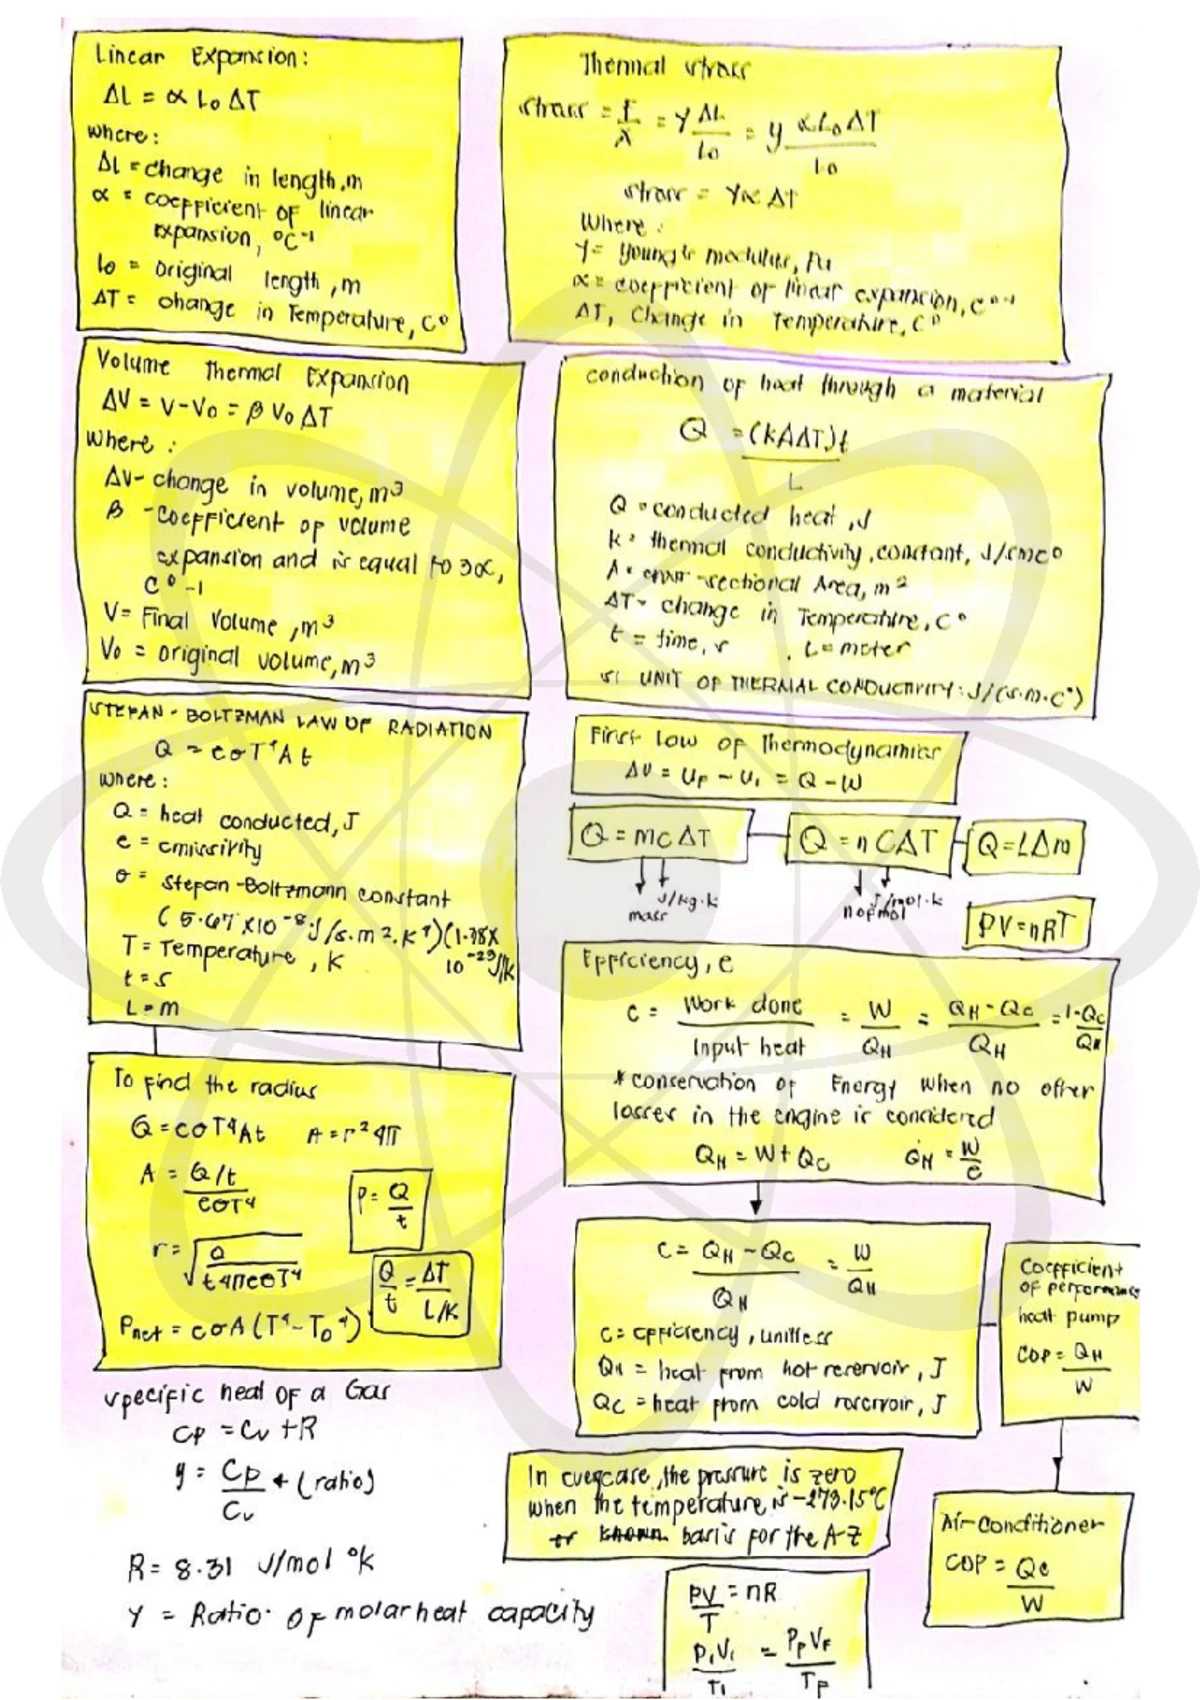 Linear Expansion:
ΔL = α L₀ ΔT
where:
ΔL = change in length, m
α = coefficient of linear
expansion, °C⁻¹
lo = original length, m
ΔT = change in Temperature, C°
Thermal stress
stress = F/A = Y ΔL/Lo = y αL₀ΔT/Lo
stress = Yα ΔT
Where:
Y = Young's modulus, Pa
α = coefficient of linear expansion, C°⁻¹
ΔT, Change in Temperature, C°
Volume Thermal Expansion
ΔV = V-Vo = β Vo ΔT
where:
ΔV- change in volume, m³
β - coefficient of volume
expansion and is equal to 3α,
C°-1
V = Final Volume, m³
Vo = original volume, m³
conduction of heat through a material
Q = (kAΔT)t
L
Q = conducted heat, J
k = thermal conductivity, constant, J/smc°
A = cross-sectional Area, m²
ΔT- change in Temperature, C°
t = time, s . L = meter
SI UNIT OF THERMAL CONDUCTIVITY: J/(s·m·C°)
STEFAN-BOLTZMAN LAW OF RADIATION
Q = eσT⁴At
where:
Q = heat conducted, J
e = emissivity
σ = Stefan-Boltzmann constant
(5.67 x10⁻⁸ J/s.m².K⁴)(1.38x
10⁻²³ J/K
T = Temperature, K
t = s
L = m
First Law of Thermodynamics
ΔU = Uf - Ui = Q - W
Q = mcΔT
mass J/kg·k
Q = nCΔT
n of mol J/mol·k
Q = LΔm
PV = nRT
Efficiency, e
e = Work done/Input heat = W/QH = QH-Qc/QH = 1-Qc/QH
* conservation of Energy when no other
losses in the engine is considered
QH = W + Qc QH = W/e
To find the radius
Q = eσT⁴At A = r²4π
A = Q/t
eσT⁴
P = Q/t
r = √Q/t4πeσT⁴
Q/t = ΔT/L/K
Pnet = eσA(T⁴-T₀⁴)
e = QH - Qc/QH = W/QH
e = efficiency, unitless
QH = heat from hot reservoir, J
Qc = heat from cold reservoir, J
Coefficient
of performance
heat pump
COP = QH/W
specific heat of a Gas
Cp = Cv + R
y = Cp/Cv + (ratio)
R = 8.31 J/mol °k
γ = Ratio of molar heat capacity
the pressure is zero
when the temperature is -273.15°C
or basis for the A-Z
Air-conditioner
COP = Qc/W
PV/T = nR
P₁V₁/T₁ = PfVf/Tf